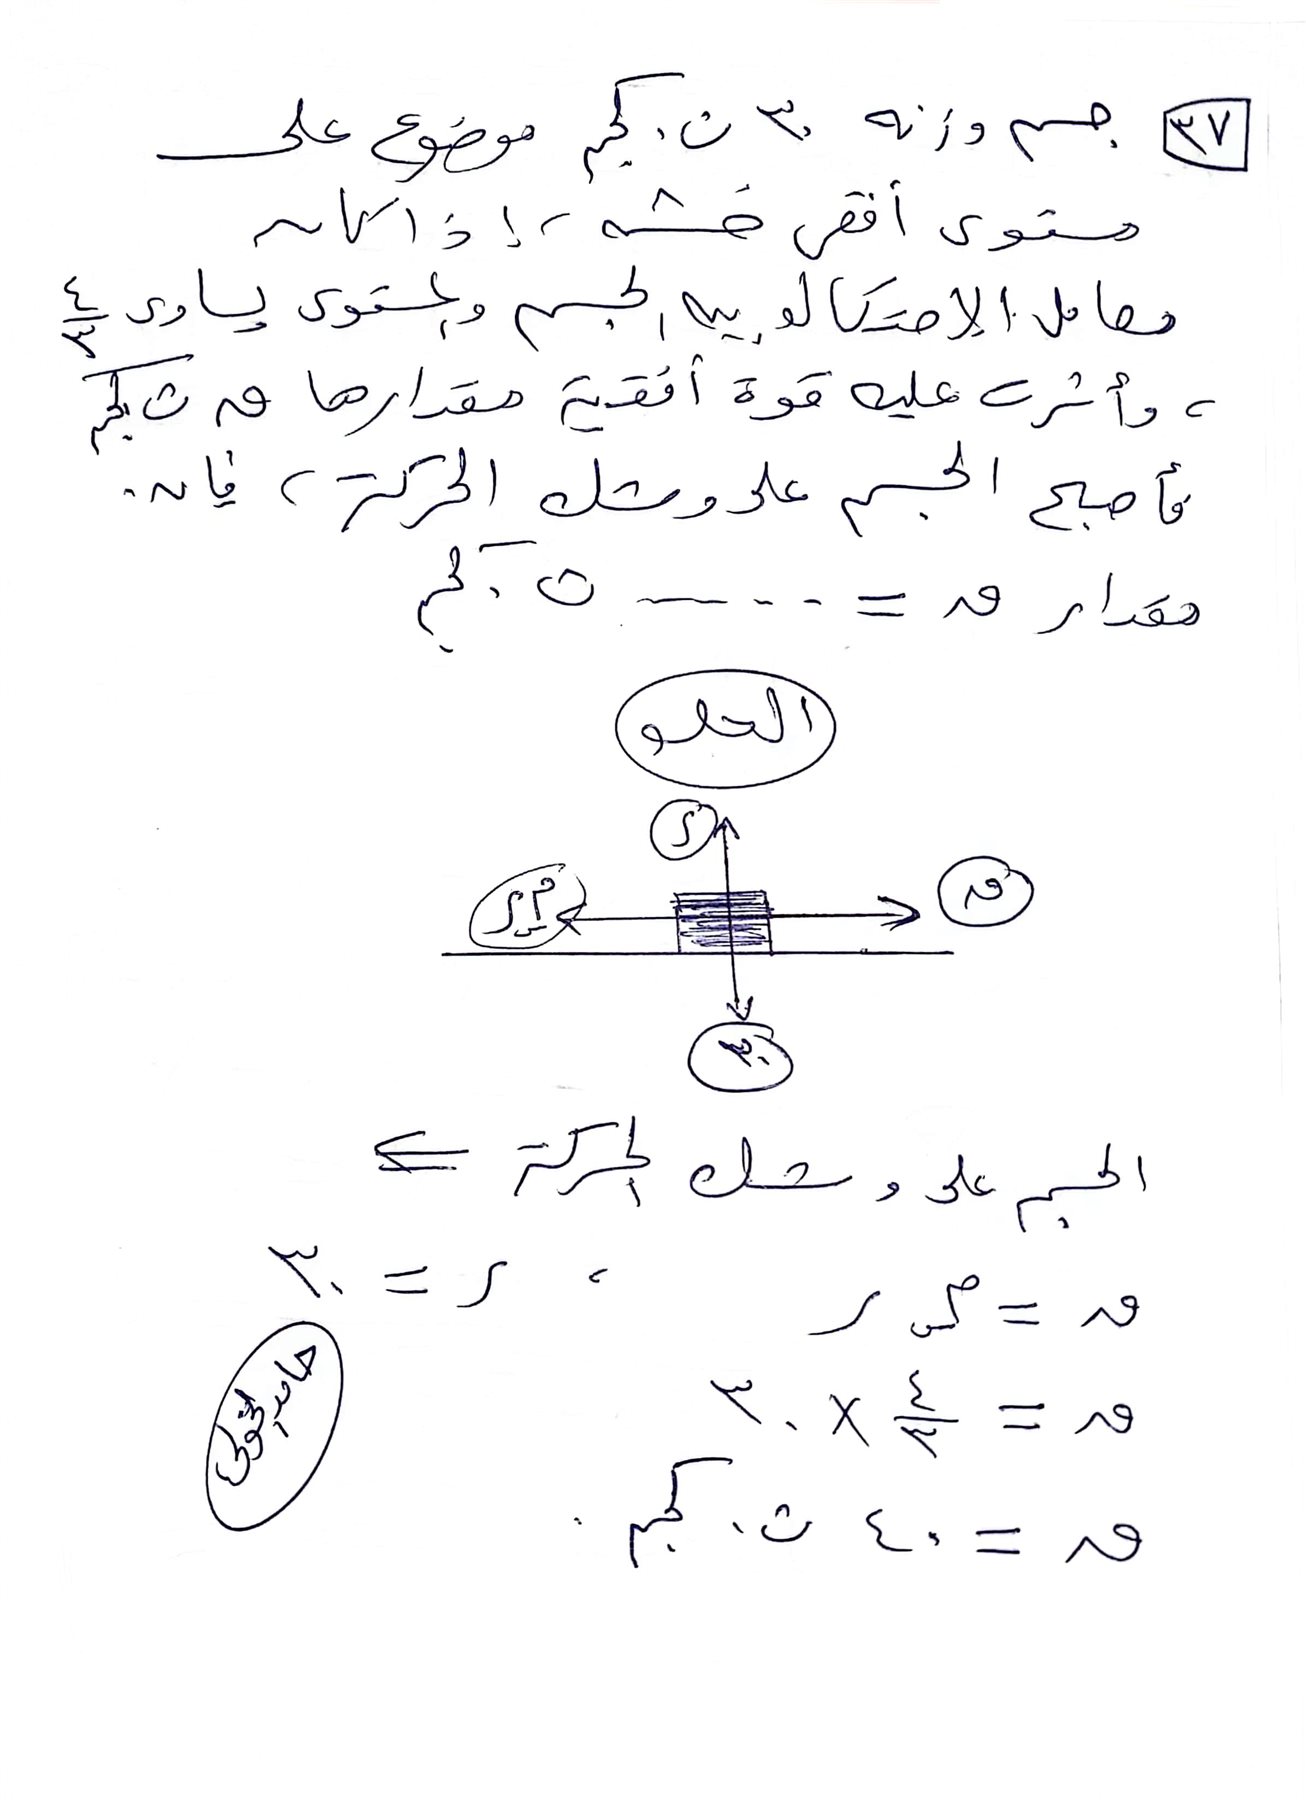 ٣٧ جسم وزنه ٣٠ ث.كجم موضوع على
مستوى أفقى خشن ، إذا كان
معامل الإحتكاك بين الجسم والمستوى يساوى ٤/٣
، وأثرت عليه قوة أفقية مقدارها ق ث.كجم
فأصبح الجسم على وشك الحركة ، فإن
مقدار ق = ---- ث.كجم
الحل
ر
م س ر
ق
٣٠
الجسم على وشك الحركة ⇐
ق = م س ر ، ر = ٣٠
ق = ٤/٣ × ٣٠
ق = ٤٠ ث.كجم.